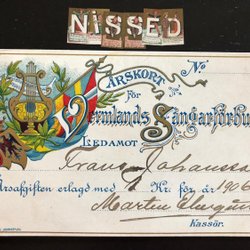 NISSED
ÅRSKORT No
FÖR
Vermlands Sångarförbu
LEDAMOT
Frans Johanss
Årsafgiften erlagd med Kr. för år 190
Martin
Kassör.